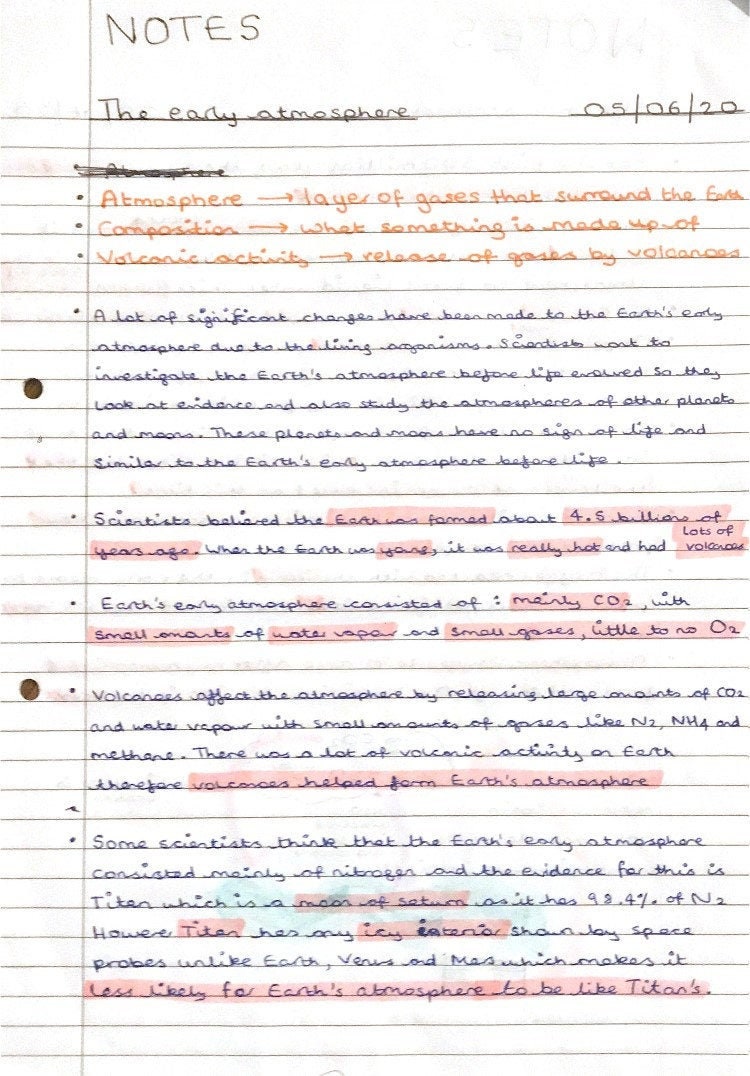 NOTES
The early atmosphere 05/06/20
• Atmosphere → layer of gases that surround the Earth
• Composition → what something is made up of
• Volcanic activity → release of gases by volcanoes
• A lot of significant changes have been made to the Earth's early
atmosphere due to the living organisms. Scientists want to
investigate the Earth's atmosphere before life evolved so they
look at evidence and also study the atmospheres of other planets
and moons. These planets and moons have no sign of life and
similar to the Earth's early atmosphere before life.
• Scientists believed the Earth was formed about 4.5 billions of
years ago. When the Earth was young, it was really hot and had lots of volcanoes
• Earth's early atmosphere consisted of : mainly CO2, with
small amounts of water vapour and small gases, little to no O2
• Volcanoes affect the atmosphere by releasing large amounts of CO2
and water vapour with small amounts of gases like N2, NH4 and
methane. There was a lot of volcanic activity on Earth
therefore volcanoes helped form Earth's atmosphere
• Some scientists think that the Earth's early atmosphere
consisted mainly of nitrogen and the evidence for this is
Titan which is a moon of saturn as it has 98.4% of N2
Howere Titan has any icy interior shown by space
probes unlike Earth, Venus and Mas which makes it
less likely for Earth's atmosphere to be like Titan's.